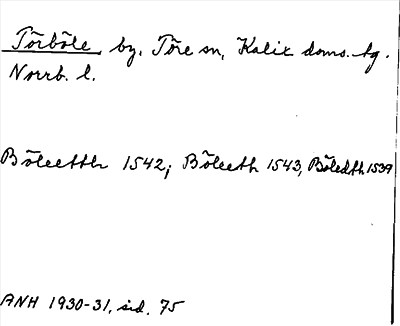 Törböle, by, Töre sn, Kalix doms. tg.
Norrb. l.
Böleetth 1542; Böleeth 1543, Böledth 1539
ANH 1930-31, sid. 75